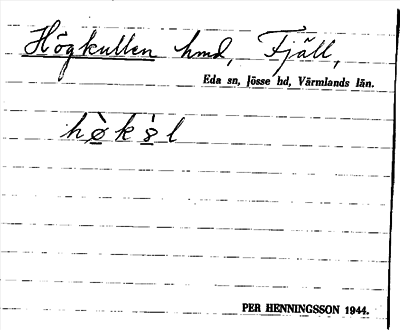 Högkullen hmd, Fjäll,
Eda sn, Jösse hd, Värmlands län.
hø̀ks̀l
PER HENNINGSSON 1944.